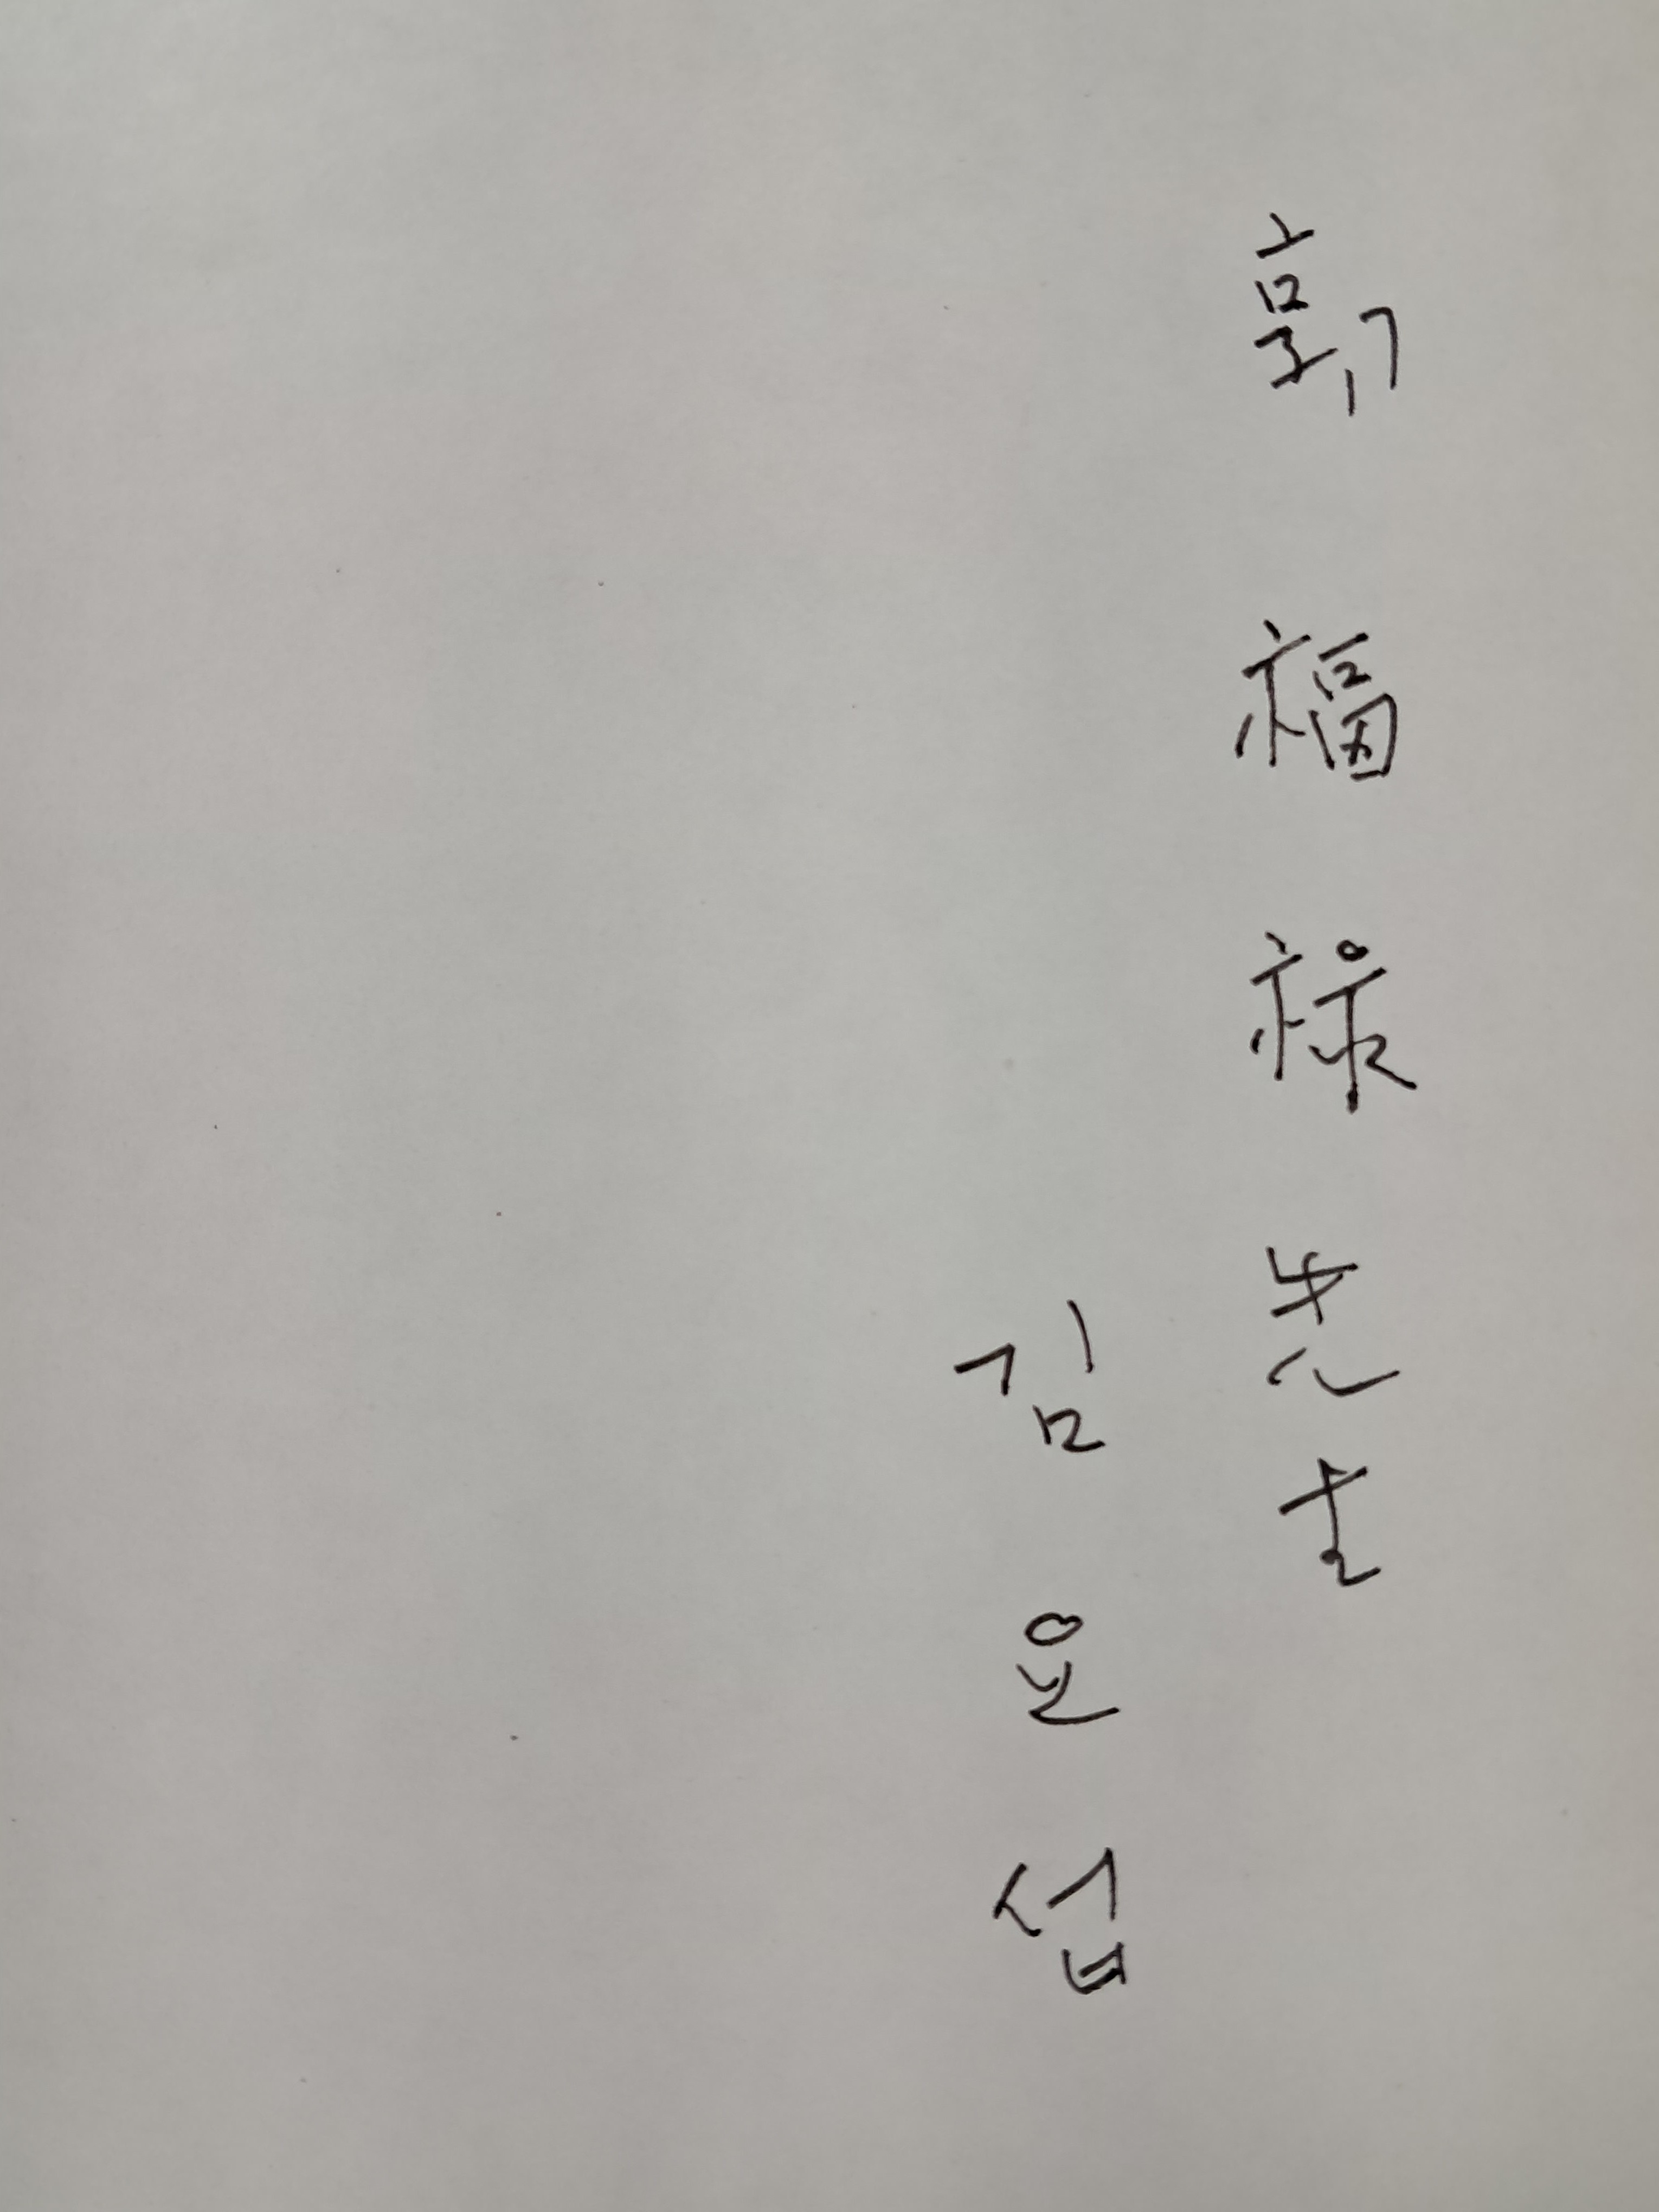 郭福祿先生
김윤섭